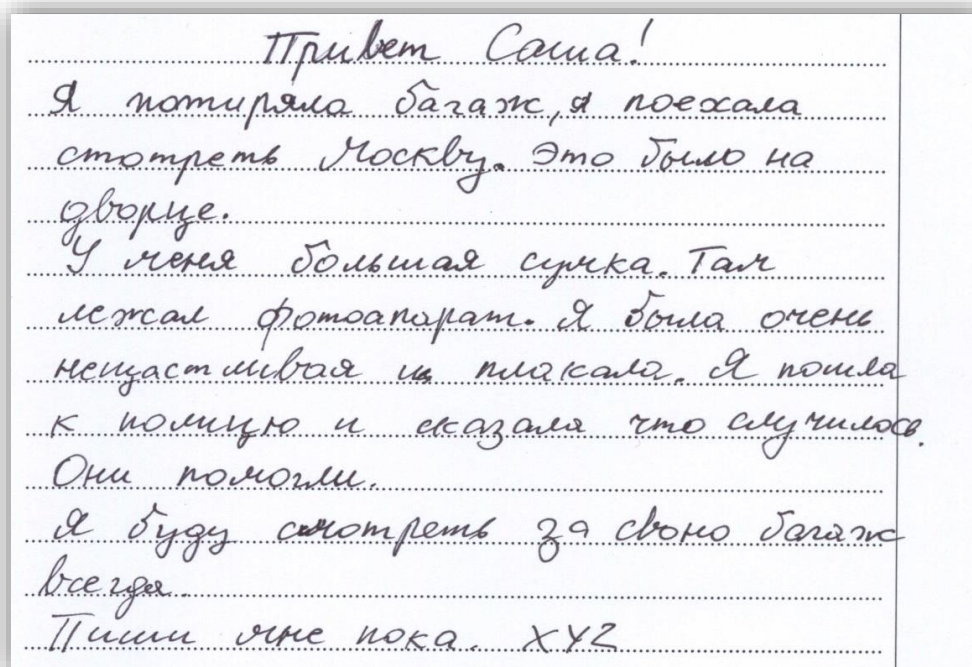 Привет Саша!
Я потиряла багаж, я поехала
стотреть Москву. Это было на
дворце.
У меня большая сумка. Там
лежал фотоапарат. Я была очень
нещастливая и плакала. Я пошла
к полицю и сказала что случилось.
Они помогли.
Я буду смотреть за свою багаж
всегда.
Пиши мне пока. XYZ